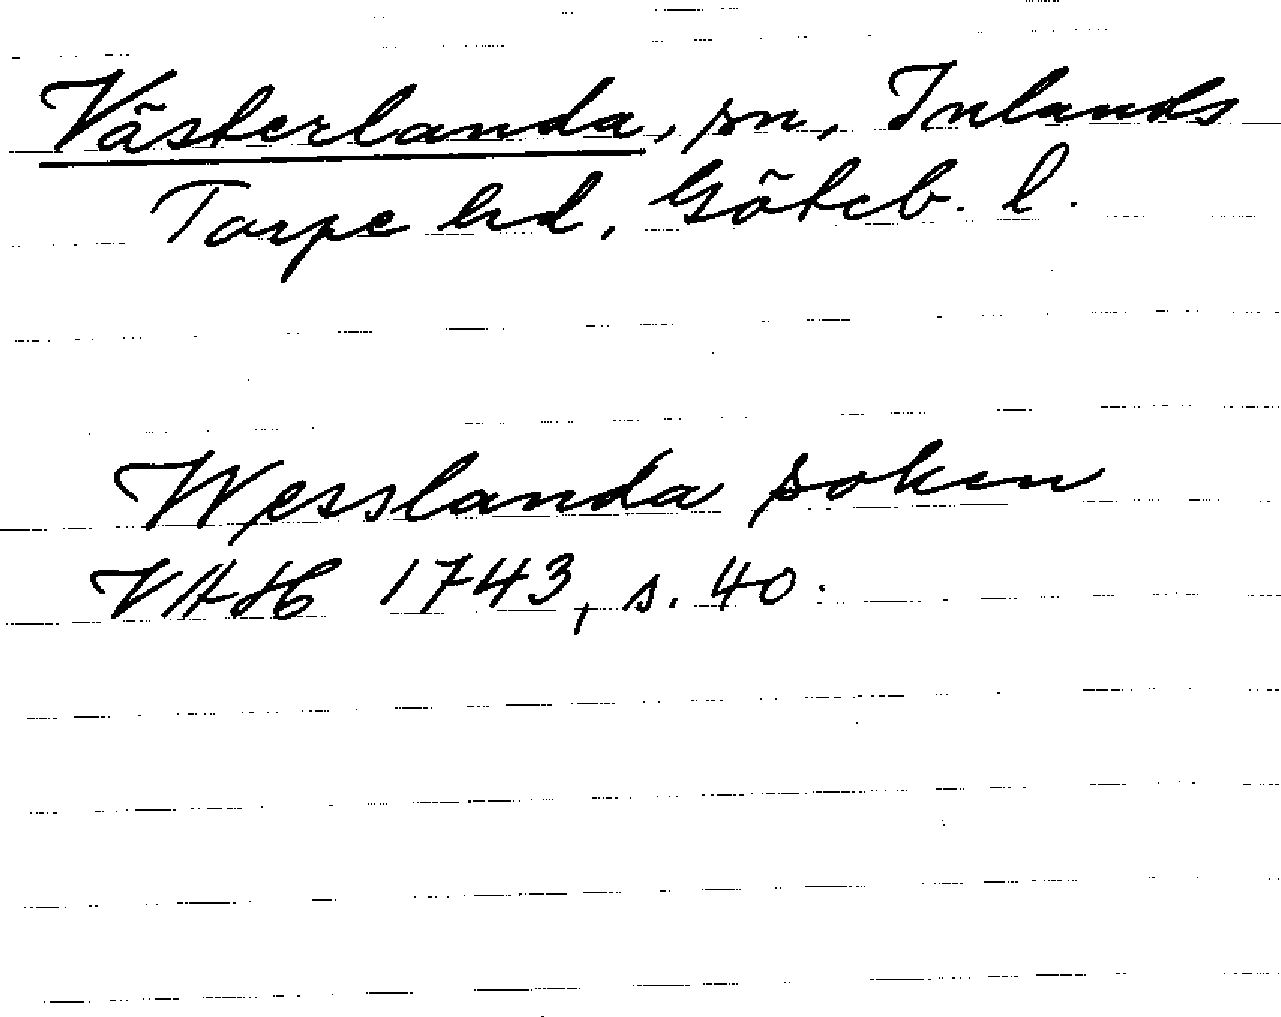 Västerlanda, sn, Inlands
Torpe hd, Göteb. l.
Wesslanda soken
VAH 1743, s. 40.